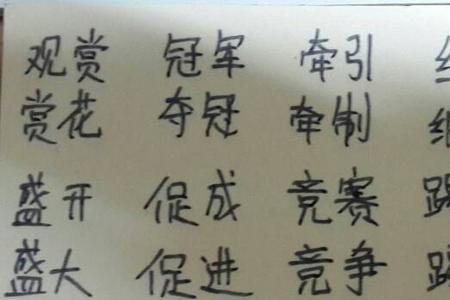 观赏 冠军 牵引
赏花 夺冠 牵制
盛开 促成 竞赛
盛大 促进 竞争